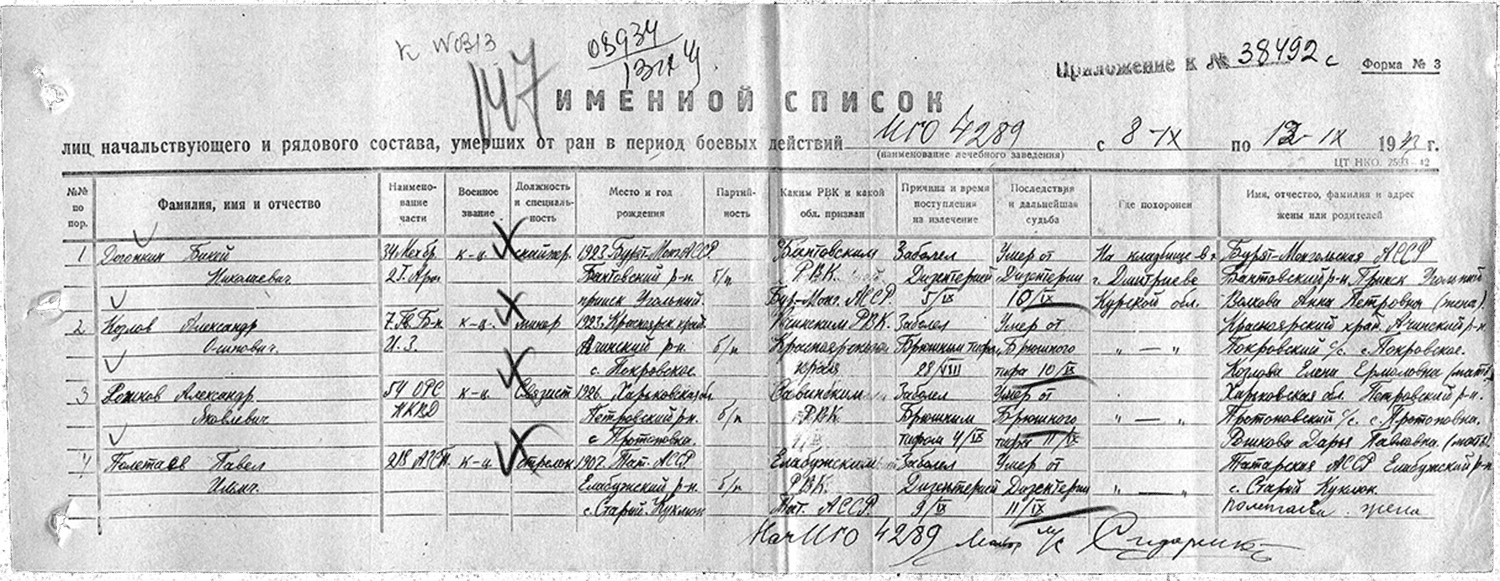 К №0313
03934
13 IX 4
147
Приложение к № 38492 с
Форма № 3
ИМЕННОЙ СПИСОК
лиц начальствующего и рядового состава, умерших от ран в период боевых действий ИГО 4289 с 8-IX по 12-IX 1943 г.
(наименование лечебного заведения)
ЦТ НКО.
№№ по пор.
Фамилия, имя и отчество
Наимено-вание части
Военное звание
Должность и специаль-ность
Место и год рождения
Партий-ность
Каким РВК и какой обл. призван
Причина и время поступления на излечение
Последствия и дальнейшая судьба
Где похоронен
Имя, отчество, фамилия и адрес жены или родителей
1 34 Мехбр. к-ц 1923 Бурят-Монг. АССР. Баитовским Заболел Умер от На кладбище в Бурят-Монгольская АССР
Николаевич. 2 т. Арм. Баитовский р-н б/п РВК. Дизентерией Дизентерии г. Дмитриеве Баитовский р-н. Прииск Угольный
прииск Угольный Бур-Монг. АССР. 5/IX 10/IX Курской обл. Волкова Анна Петровна (жена).
2 Козлов Александр 7 Гв. к-ц. минер 1923. Красноярск. край. Ачинским РВК. Заболел Умер от Красноярский край. Ачинский р-н
Осипович. Ачинский р-н. б/п Красноярского Брюшным тифом Брюшного " — " Покровский с/с. с. Покровское.
с. Покровское. края 28/VIII тифа 10/IX Козлова Елена Ермоловна (мать)
3 Александр 54 ОРС к-ц Связист 1926. Харьковская Савинским Заболел Умер от Харьковская обл. Петровский р-н.
Яковлевич НКВД Петровский р-н. б/п РВК. Брюшным Брюшного " — " Протоповка с/с. с. Протоповка.
с Протоповка. тифом 4/IX тифа 11/IX Дарья Павловна (мать)
4 Полетаев Павел 218 к-ц Стрелок 1907. Тат. АССР Елабужским Заболел Умер от Татарская АССР Елабужский р-н
Ильич. Елабужский р-н. б/п РВК. Дизентерией Дизентерии " — " с. Старый Куклюк.
с. Старый Куклюк Тат. АССР. 9/IX 11/IX Полетаева жена
Нач ИГО 4289 Майор м/с